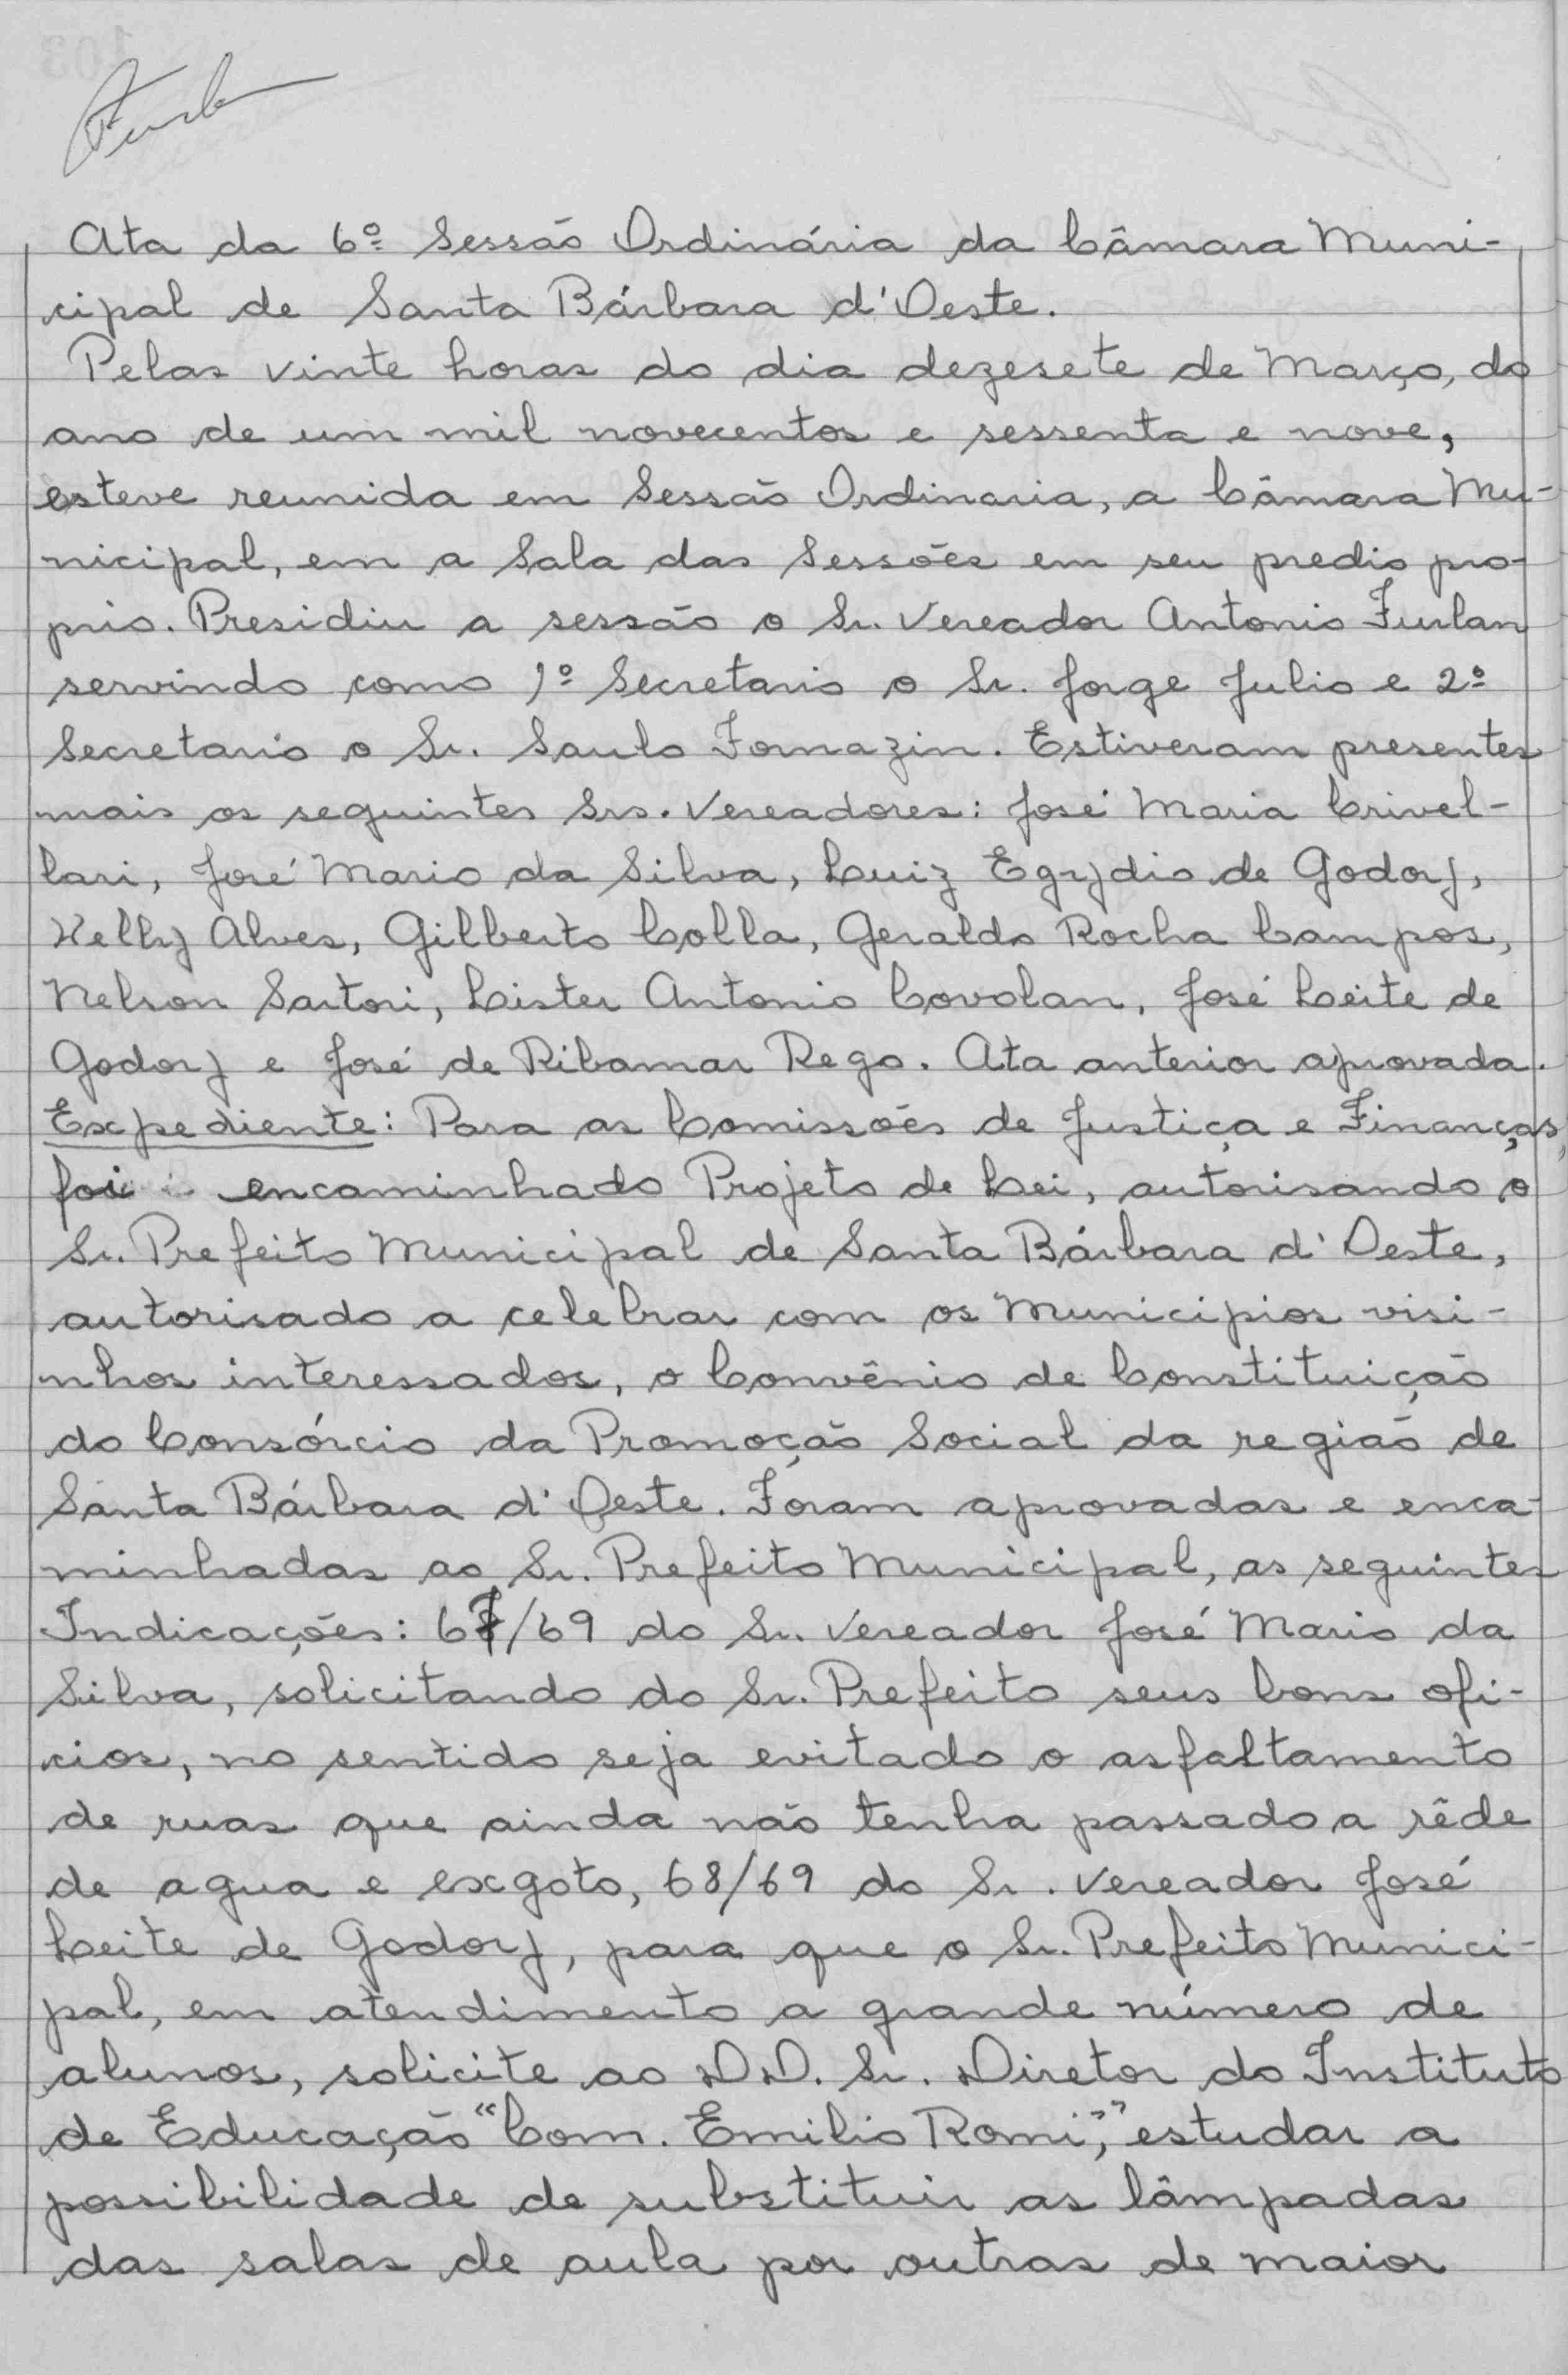 Ata da 6º Sessão Ordinária da Câmara Muni-
cipal de Santa Bárbara d'Oeste.
Pelas vinte horas do dia dezesete de Março, do
ano de um mil novecentos e sessenta e nove,
esteve reunida em Sessão Ordinaria, a Câmara Mu-
nicipal, em a Sala das Sessões em seu predio pro-
prio. Presidiu a sessão o Sr. Vereador Antonio Furlan
servindo como 1º Secretario o Sr. Jorge Julio e 2º
Secretario o Sr. Saulo Fornazin. Estiveram presentes
mais os seguintes Srs. Vereadores: José Maria Crivel-
lari, José Mario da Silva, Luiz Egydio de Godoy,
Welly Alves, Gilberto Colla, Geraldo Rocha Campos,
Nelson Sartori, Lister Antonio Covolan, José Leite de
Godoy e José de Ribamar Rego. Ata anterior aprovada.
Expediente: Para as Comissões de Justiça e Finanças,
foi encaminhado Projeto de Lei, autorisando o
Sr. Prefeito Municipal de Santa Bárbara d'Oeste,
autorisado a celebrar com os Municipios visi-
nhos interessados, o Convênio de Constituição
do Consórcio da Promoção Social da região de
Santa Bárbara d'Oeste. Foram aprovadas e enca-
minhadas ao Sr. Prefeito Municipal, as seguintes
Indicações: 67/69 do Sr. Vereador José Mario da
Silva, solicitando do Sr. Prefeito seus bons ofi-
cios, no sentido seja evitado o asfaltamento
de ruas que ainda não tenha passado a rêde
de agua e exgoto, 68/69 do Sr. Vereador José
Leite de Godoy, para que o Sr. Prefeito Munici-
pal, em atendimento a grande número de
alunos, solicite ao DD. Sr. Diretor do Instituto
de Educação "Com. Emilio Romi," estudar a
possibilidade de substituir as lâmpadas
das salas de aula por outras de maior